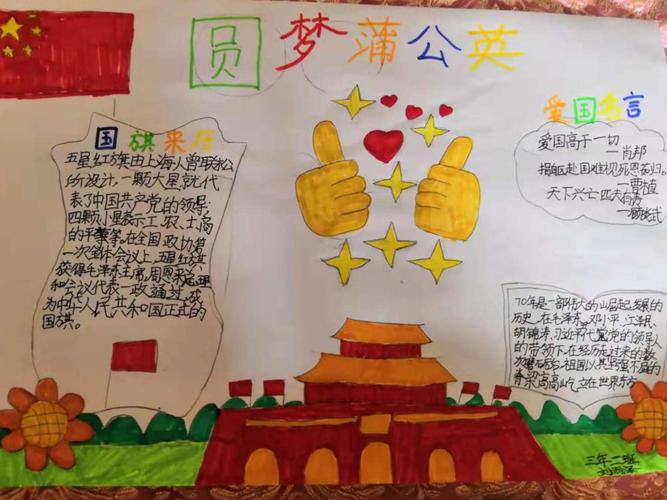 圆梦蒲公英
国旗来历
五星红旗由上海人曾联松
所设计,一颗大星就代
表了中国共产党的领导,
四颗小星表示工、农、士、商
的平等。在全国政协第
一次全体会议上,五星红旗
获得毛泽东主席,周恩来总理
和会议代表一致通过,成
为中华人民共和国正式的
国旗。
爱国名言
爱国高于一切
—肖邦
捐躯赴国难视死忽如归。
—曹植
天下兴亡匹夫有责
—顾炎武
70年是一部伟大的山崛起发展的
历史,在毛泽东、邓小平、江泽民、
胡锦涛、习近平代党的领导人
的带领下,在经历过来的数
次磨石历后,祖国以其坚强不屈的
高高屹立在世界东方
三年二班